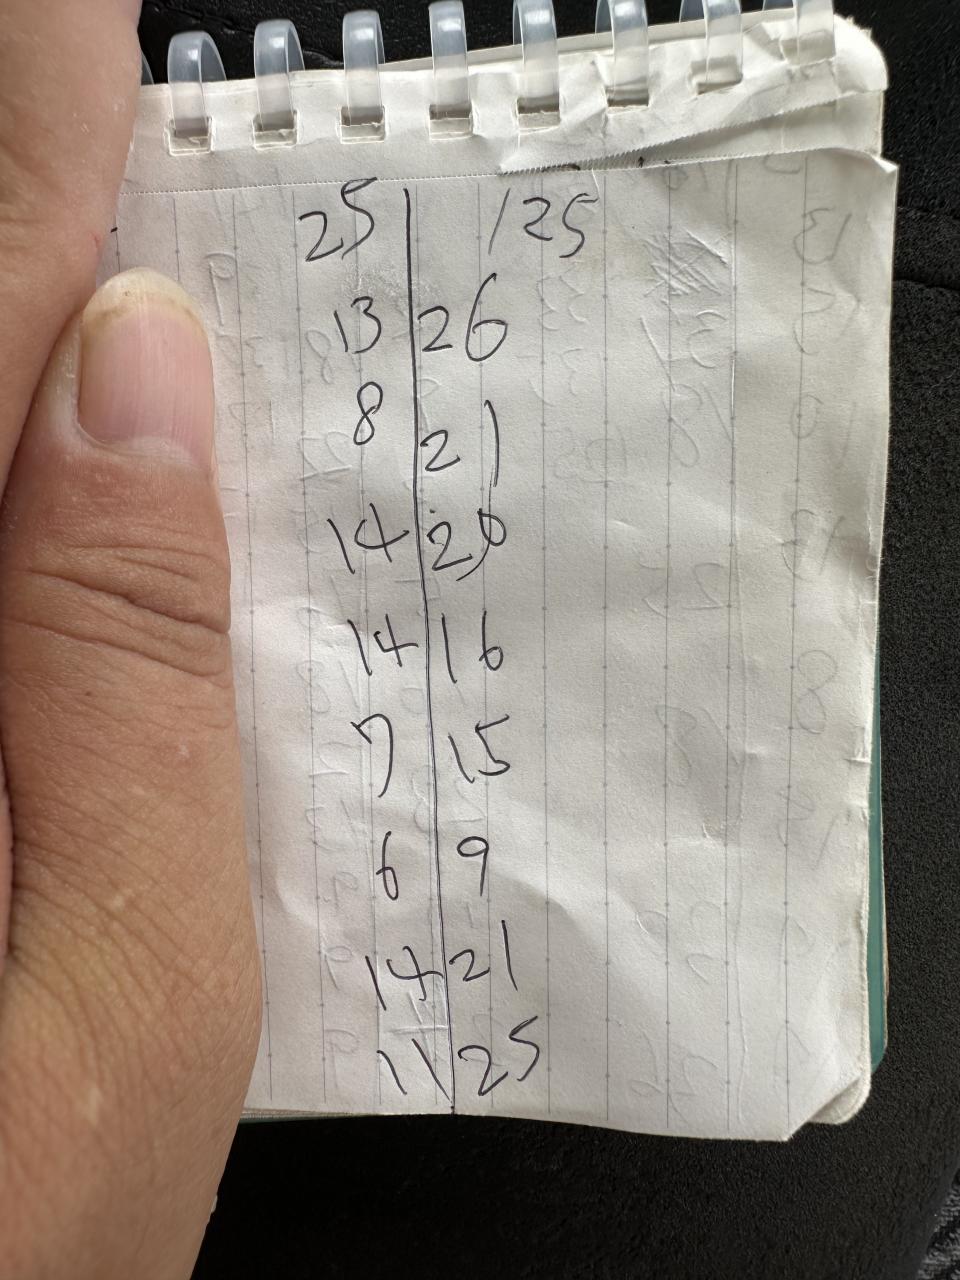 25 | 125
13 | 26
8 | 21
14 | 20
14 | 16
7 | 15
6 | 9
14 | 21
11 | 25